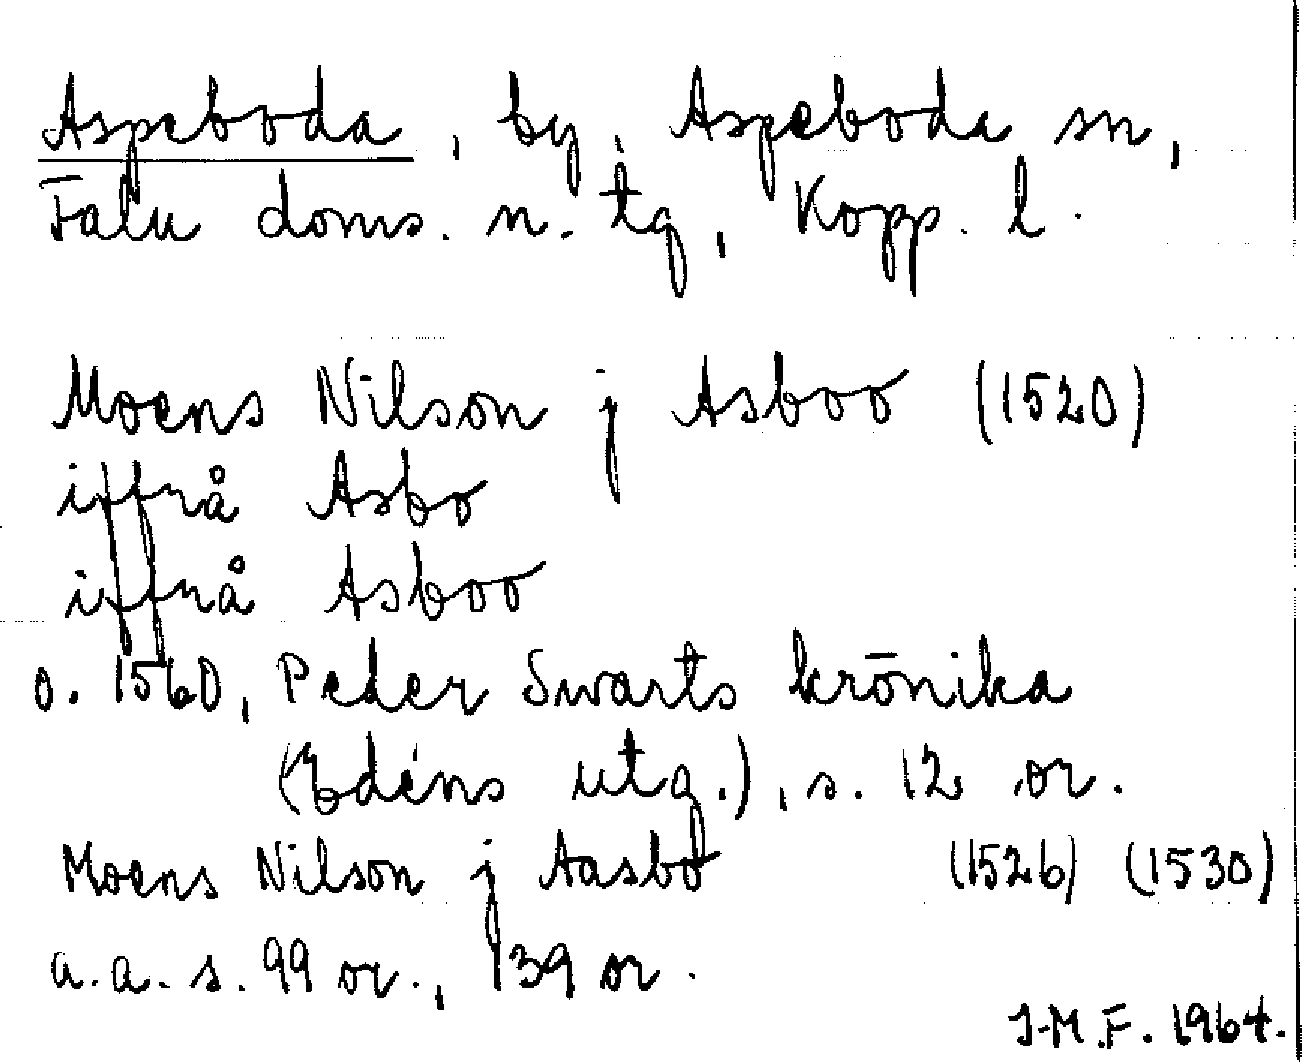 Aspeboda, by, Aspeboda sn,
Falu doms. n. tg, Kopp. l.
Moens Nilson j Asboo (1520)
iffrå Asbo
iffrå Asboo
o. 1560, Peder Swarts krönika
(Edéns utg.), s. 12 or.
Moens Nilson j Aasbo (1526) (1530)
a.a. s. 99 or., 139 or.
J.M.F. 1964.